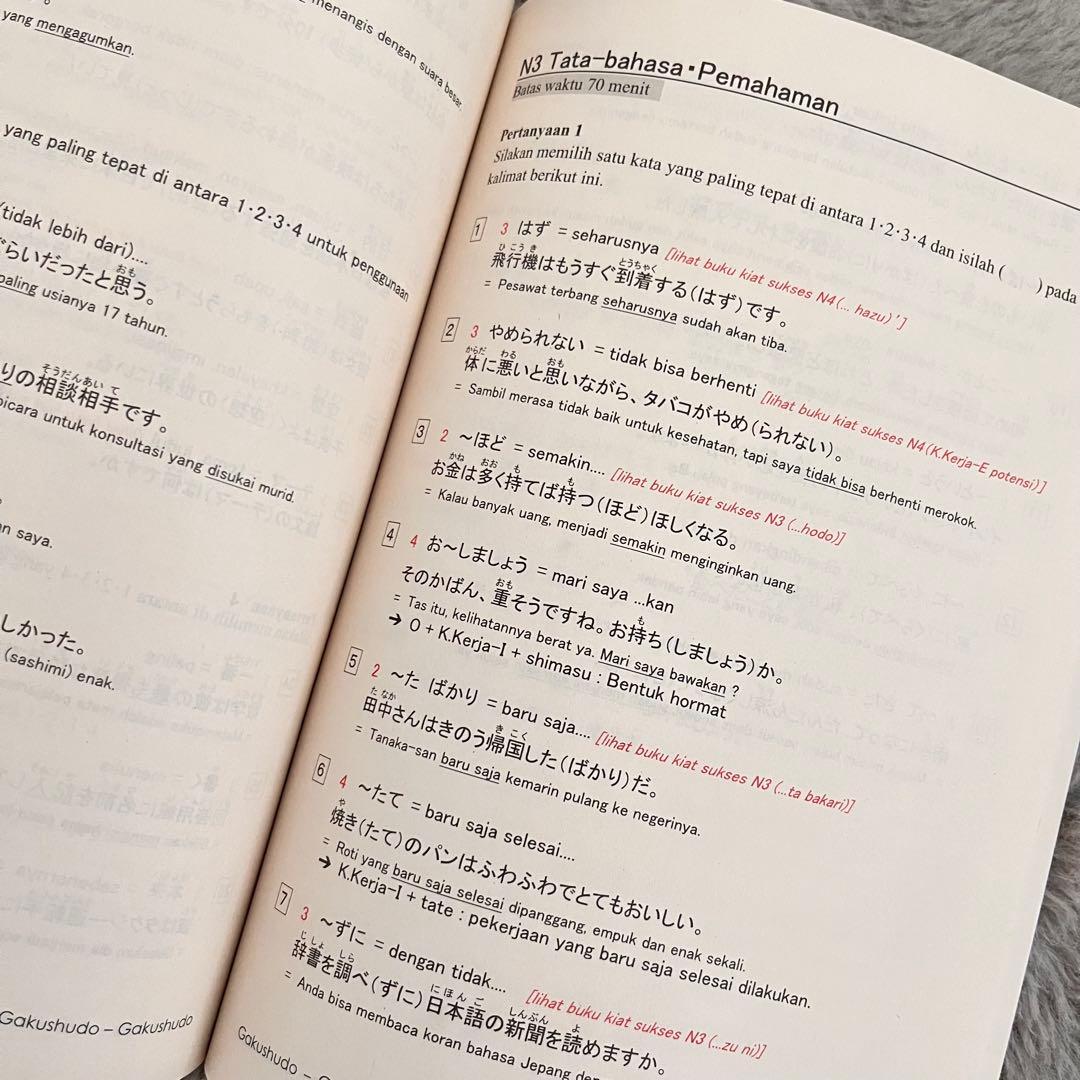 menangis dengan suara besar.
yang mengagumkan.
yang paling tepat di antara 1・2・3・4 untuk penggunaan
(tidak lebih dari)....
ぐらいだったと思う。
おも
paling usianya 17 tahun.
そうだんあいて
りの相談相手です。
bicara untuk konsultasi yang disukai murid.
an saya.
しかった。
(sashimi) enak.
Gakushudo – Gakushudo
N3 Tata-bahasa・Pemahaman
Batas waktu 70 menit
Pertanyaan 1
Silakan memilih satu kata yang paling tepat di antara 1・2・3・4 dan isilah ( ) pada
kalimat berikut ini.
1 3 はず = seharusnya [lihat buku kiat sukses N4(... hazu)']
ひこうき とうちゃく
飛行機はもうすぐ到着する(はず)です。
= Pesawat terbang seharusnya sudah akan tiba.
2 3 やめられない = tidak bisa berhenti [lihat buku kiat sukses N4(K.Kerja-E potensi)]
からだ わる おも
体に悪いと思いながら、タバコがやめ(られない)。
= Sambil merasa tidak baik untuk kesehatan, tapi saya tidak bisa berhenti merokok.
3 2 ～ほど = semakin.... [lihat buku kiat sukses N3 (...hodo)]
かね おお も も
お金は多く持てば持つ(ほど)ほしくなる。
= Kalau banyak uang, menjadi semakin menginginkan uang.
4 4 お～しましょう = mari saya ...kan
おも も
そのかばん、重そうですね。お持ち(しましょう)か。
= Tas itu, kelihatannya berat ya. Mari saya bawakan ?
→ O + K.Kerja-I + shimasu : Bentuk hormat
5 2 ～た ばかり = baru saja.... [lihat buku kiat sukses N3 (...ta bakari)]
たなか きこく
田中さんはきのう帰国した(ばかり)だ。
= Tanaka-san baru saja kemarin pulang ke negerinya.
6 4 ～たて = baru saja selesai....
や
焼き(たて)のパンはふわふわでとてもおいしい。
= Roti yang baru saja selesai dipanggang, empuk dan enak sekali.
→ K.Kerja-I + tate : pekerjaan yang baru saja selesai dilakukan.
7 3 ～ずに = dengan tidak.... [lihat buku kiat sukses N3 (...zu ni)]
じしょ しら にほんご しんぶん よ
辞書を調べ(ずに)日本語の新聞を読めますか。
= Anda bisa membaca koran bahasa Jepang
Gakushudo –